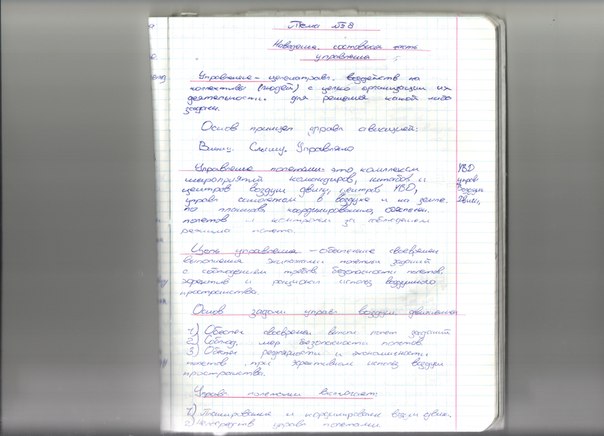 Тема №8
Наведение составная часть
управления
Управление - целенаправ. воздейств на
коллективы (людей) с целью организации их
деятельности для решения какой либо
задачи.
Основ принцип управл авиацией:
Вижу. Слышу. Управляю
Управление полетами: это комплекс
мероприятий командиров, штабов и
центров воздуш движ, центров УВД,
управл самолетом в воздухе и на земле.
по планиров, координированию, обеспечен.
полетов и контролем за соблюдением
режима полета.
УВД
управ
воздуш
движ.
Цель управления - обеспечение своевремен
выполнения экипажами полетн заданий
с соблюдением требов безопасности полетов.
эффектив и рацион использ воздушного
пространства.
Основ задачи управл воздушн движением
1) Обеспеч своевремен выполн полет заданий
2) Соблюд мер безопасности полетов
3) Обеспеч регулярности и экономичности
полетов при эффективном использ воздушн
пространства.
Управл полетами включает:
1) Планирование и координирование возд движ.
2) Непосредств управл полетами.